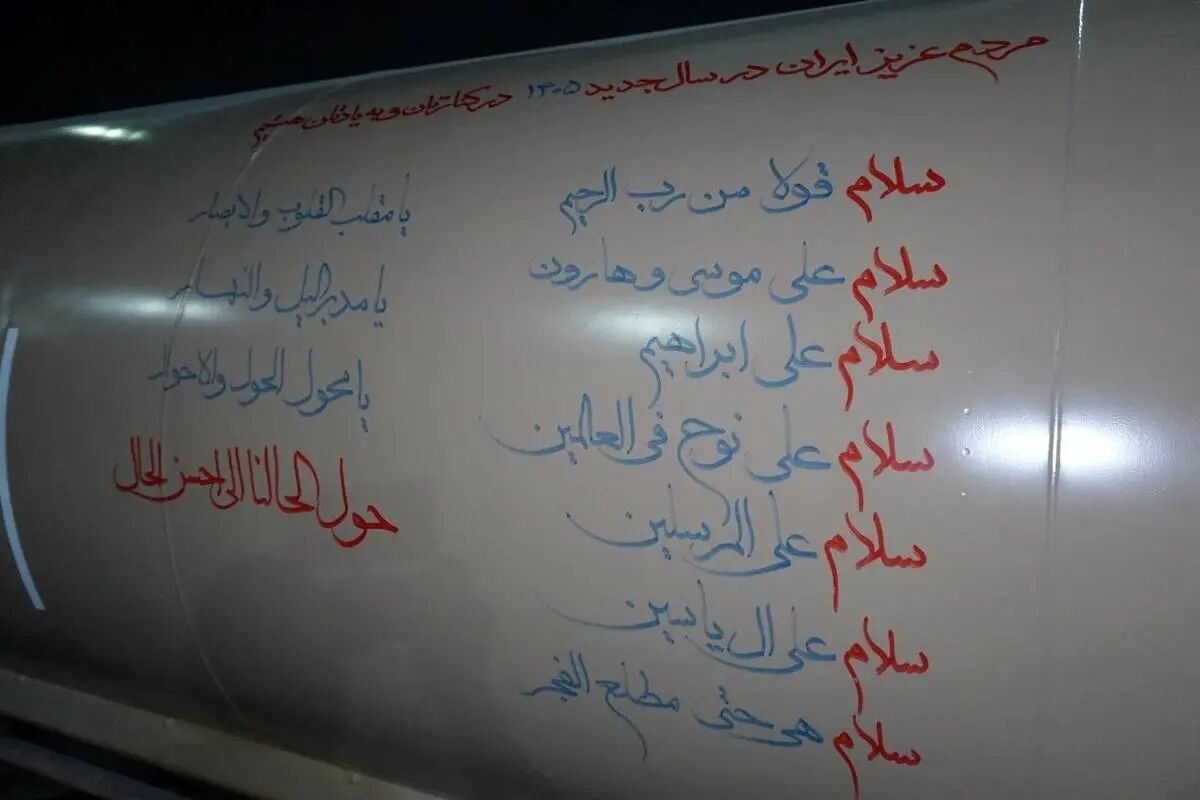 مردم عزیز ایران در سال جدید ۱۴۰۵ در کنارتان و به یادتان هستیم
سلام قولا من رب الرحیم
سلام علی موسی و هارون
سلام علی ابراهیم
سلام علی نوح فی العالمین
سلام علی المرسلین
سلام علی ال یاسین
سلام هی حتی مطلع الفجر
یا مقلب القلوب والابصار
یا مدبر الیل والنهار
یا محول الحول والاحوال
حول الحالنا الی احسن الحال